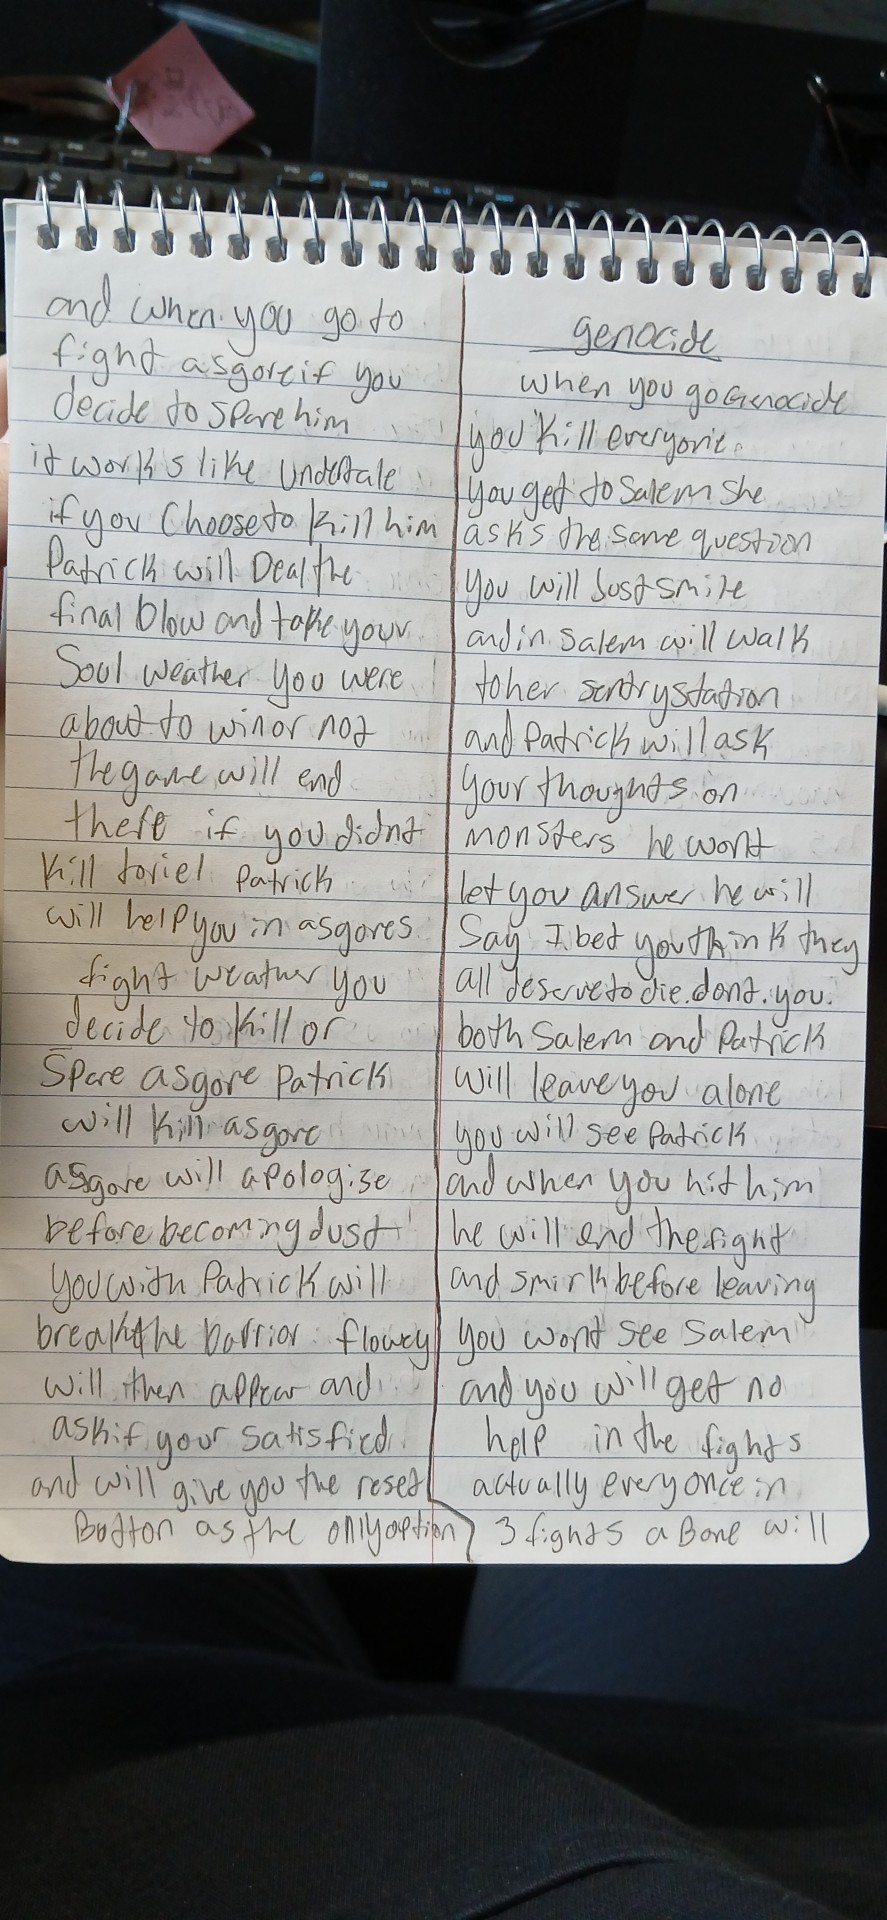 and when you go to
fight asgore if you
decide to spare him
it works like undertale
if you Choose to Kill him
Patrick will Deal the
final blow and take your
Soul weather you were
about to win or not
the game will end
there if you didnt
Kill toriel Patrick
will help you in asgores
fight weather you
decide to Kill or
Spare asgore Patrick
will Kill asgore
asgore will apologise
before becoming dust
you with Patrick will
break the barrior flowey
will then appear and
ask if your satisfied
and will give you the reset
Button as the only option
genocide
when you go Genocide
you Kill everyone.
you get to Salem she
asks the same question
you will Just smile
and in Salem will walk
to her sentry station
and Patrick will ask
your thoughts on
monsters he wont
let you answer he will
Say I bet you think they
all deserve to die. dont. you.
both Salem and Patrick
will leave you alone
you will see Patrick
and when you hit him
he will end the fight
and smirk before leaving
you wont see Salem
and you will get no
help in the fights
actually every once in
3 fights a Bone will